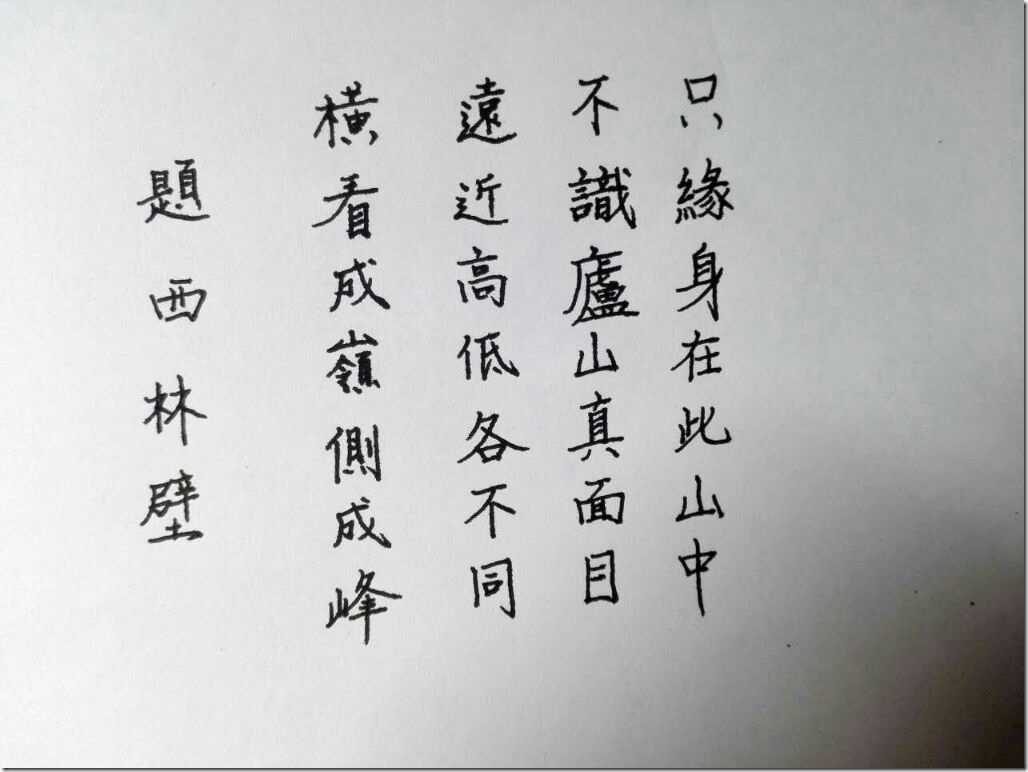 題西林壁
橫看成嶺側成峰
遠近高低各不同
不識廬山真面目
只緣身在此山中